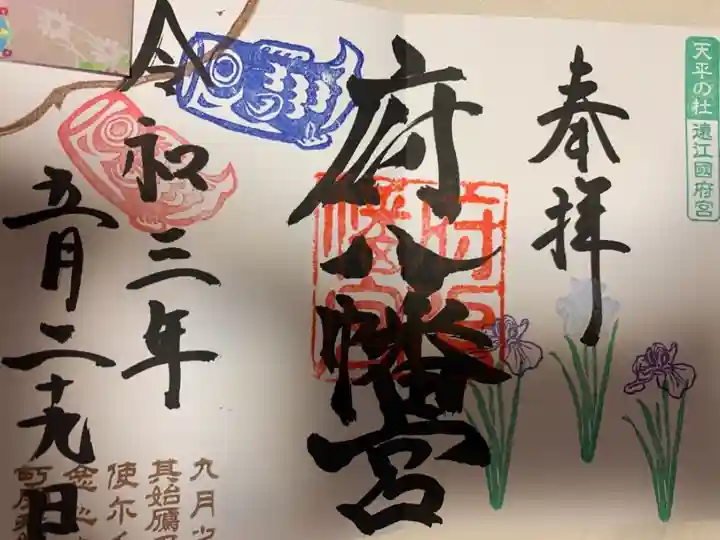 天平の杜 遠江國府宮
奉拝
府八幡宮
令和三年
五月二十九日
九月
其始鷹
使尓